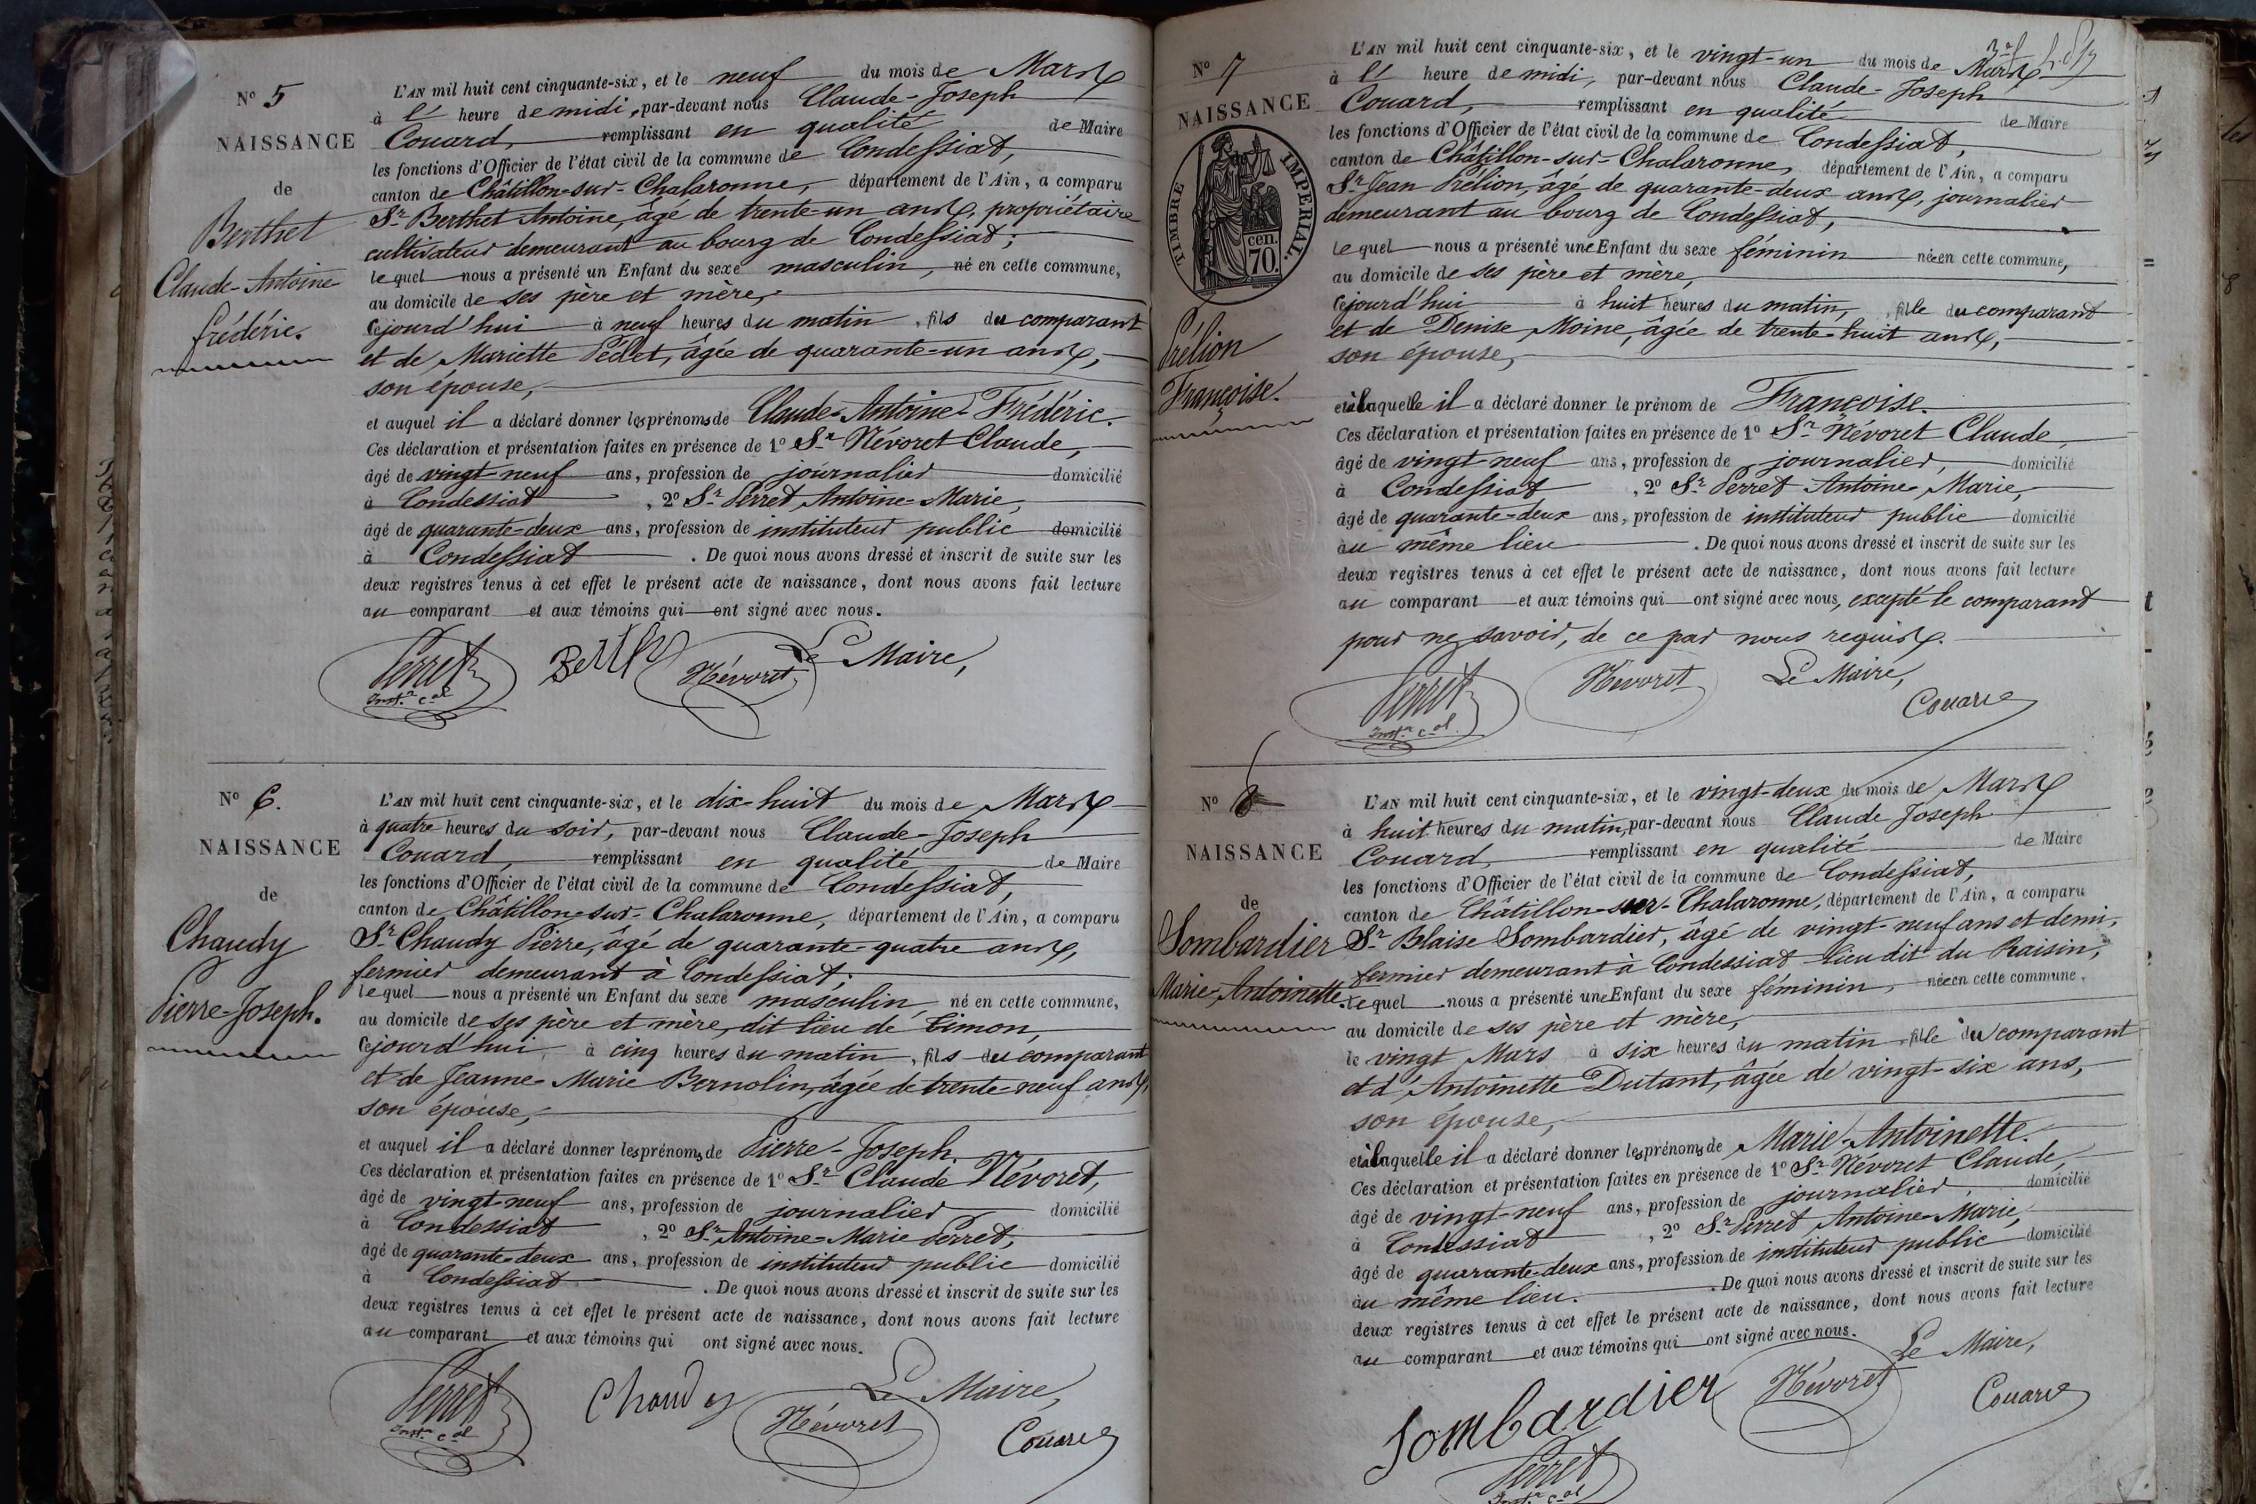 N° 5
NAISSANCE
de
Berthet
Claude-Antoine
frédéric.
L'AN mil huit cent cinquante-six, et le neuf du mois de Mars
à l' heure de midi, par-devant nous Claude-Joseph
Couard, remplissant en qualité de Maire
les fonctions d'Officier de l'état civil de la commune de Condessiat,
canton de Châtillon-sur-Chalaronne, département de l'Ain, a comparu
Sr Berthet Antoine, âgé de trente-un ans, propriétaire
cultivateur demeurant au bourg de Condessiat;
lequel nous a présenté un Enfant du sexe masculin, né en cette commune,
au domicile de ses père et mère,
cejourd'hui à neuf heures du matin, fils du comparant
et de Mariette Pédet, âgée de quarante-un ans,
son épouse,
et auquel il a déclaré donner les prénoms de Claude-Antoine-Frédéric.
Ces déclaration et présentation faites en présence de 1° Sr Névoret Claude,
âgé de vingt-neuf ans, profession de journalier domicilié
à Condessiat, 2° Sr Perret Antoine-Marie,
âgé de quarante-deux ans, profession de instituteur public domicilié
à Condessiat. De quoi nous avons dressé et inscrit de suite sur les
deux registres tenus à cet effet le présent acte de naissance, dont nous avons fait lecture
au comparant et aux témoins qui ont signé avec nous.
Perret Névoret Le Maire,
Inst.r c.al
N° 6.
NAISSANCE
de
Chaudy
Pierre-Joseph.
L'AN mil huit cent cinquante-six, et le dix-huit du mois de Mars
à quatre heures du soir, par-devant nous Claude-Joseph
Couard, remplissant en qualité de Maire
les fonctions d'Officier de l'état civil de la commune de Condessiat,
canton de Châtillon-sur-Chalaronne, département de l'Ain, a comparu
Sr Chaudy Pierre, âgé de quarante-quatre ans,
fermier demeurant à Condessiat;
lequel nous a présenté un Enfant du sexe masculin, né en cette commune,
au domicile de ses père et mère, dit lieu de Timon,
cejourd'hui, à cinq heures du matin, fils du comparant
et de Jeanne-Marie Bernolin, âgée de trente-neuf ans,
son épouse,
et auquel il a déclaré donner les prénoms de Pierre-Joseph.
Ces déclaration et présentation faites en présence de 1° Sr Claude Névoret,
âgé de vingt-neuf ans, profession de journalier domicilié
à Condessiat, 2° Sr Antoine-Marie Perret,
âgé de quarante-deux ans, profession de instituteur public domicilié
à Condessiat. De quoi nous avons dressé et inscrit de suite sur les
deux registres tenus à cet effet le présent acte de naissance, dont nous avons fait lecture
au comparant et aux témoins qui ont signé avec nous.
Perret Chaudy Névoret Le Maire,
Inst.r c.al Couard
N° 7
NAISSANCE
TIMBRE IMPERIAL.
cen.
70.
Prélion
Françoise.
L'AN mil huit cent cinquante-six, et le vingt-un du mois de Mars
à l' heure de midi, par-devant nous Claude-Joseph
Couard, remplissant en qualité de Maire
les fonctions d'Officier de l'état civil de la commune de Condessiat,
canton de Châtillon-sur-Chalaronne, département de l'Ain, a comparu
Sr Jean Prélion, âgé de quarante-deux ans, journalier
demeurant au bourg de Condessiat,
lequel nous a présenté une Enfant du sexe féminin née en cette commune,
au domicile de ses père et mère,
cejourd'hui à huit heures du matin, fille du comparant
et de Denise Moine, âgée de trente-huit ans,
son épouse,
et à laquelle il a déclaré donner le prénom de Françoise.
Ces déclaration et présentation faites en présence de 1° Sr Névoret Claude,
âgé de vingt-neuf ans, profession de journalier, domicilié
à Condessiat, 2° Sr Perret Antoine-Marie,
âgé de quarante-deux ans, profession de instituteur public domicilié
au même lieu. De quoi nous avons dressé et inscrit de suite sur les
deux registres tenus à cet effet le présent acte de naissance, dont nous avons fait lecture
au comparant et aux témoins qui ont signé avec nous, excepté le comparant
pour ne savoir, de ce par nous requis.
Perret Névoret Le Maire,
Inst.r c.al Couard
N° 8
NAISSANCE
de
Sombardier
Marie-Antoinette.
L'AN mil huit cent cinquante-six, et le vingt-deux du mois de Mars
à huit heures du matin, par-devant nous Claude Joseph
Couard, remplissant en qualité de Maire
les fonctions d'Officier de l'état civil de la commune de Condessiat,
canton de Châtillon-sur-Chalaronne, département de l'Ain, a comparu
Sr Blaise Sombardier, âgé de vingt-neuf ans et demi,
fermier demeurant à Condessiat lieu dit du Raisin,
lequel nous a présenté une Enfant du sexe féminin, née en cette commune,
au domicile de ses père et mère,
le vingt Mars à six heures du matin fille du comparant
et d'Antoinette Dutant, âgée de vingt-six ans,
son épouse,
et à laquelle il a déclaré donner les prénoms de Marie-Antoinette.
Ces déclaration et présentation faites en présence de 1° Sr Névoret Claude,
âgé de vingt-neuf ans, profession de journalier, domicilié
à Condessiat, 2° Sr Perret Antoine-Marie,
âgé de quarante-deux ans, profession de instituteur public domicilié
au même lieu. De quoi nous avons dressé et inscrit de suite sur les
deux registres tenus à cet effet le présent acte de naissance, dont nous avons fait lecture
au comparant et aux témoins qui ont signé avec nous.
Sombardier Névoret Le Maire,
Couard
Perret
Inst.r c.al